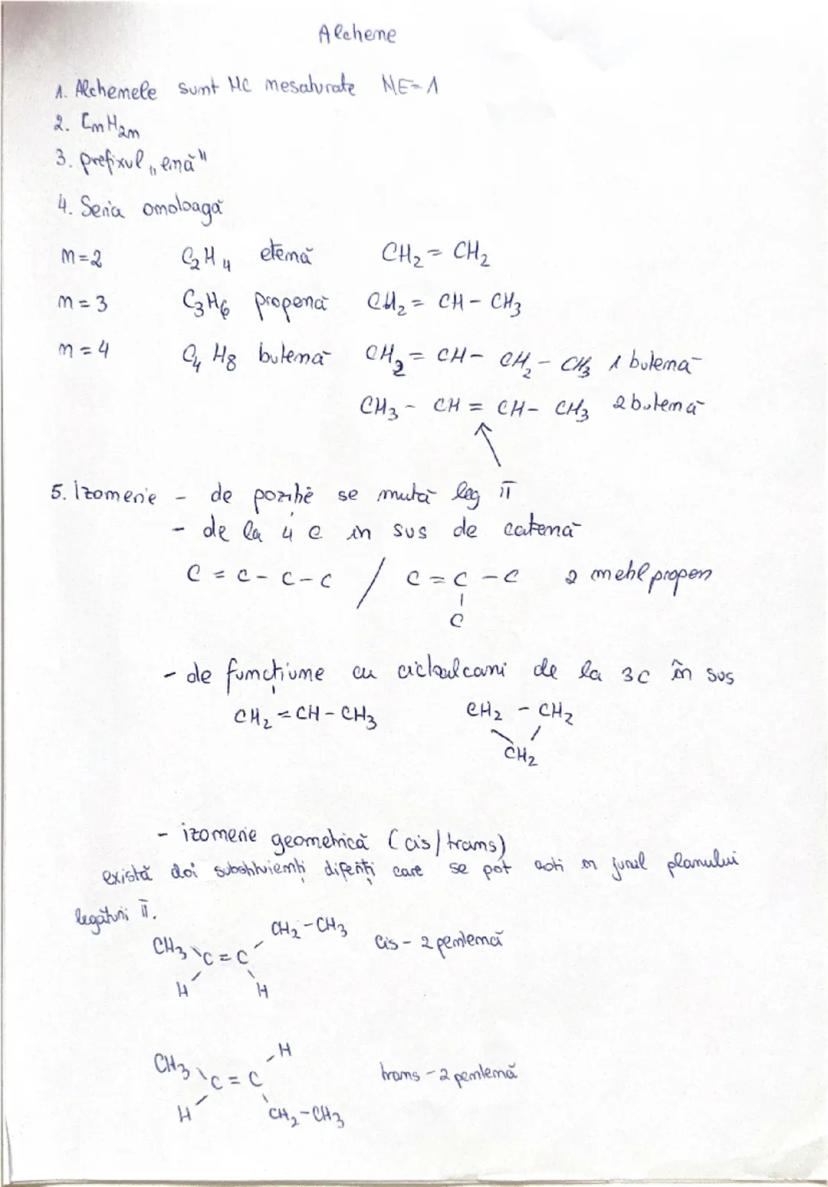 Alchene
1. Alchenele sunt HC nesaturate NE=1
2. CnH2n
3. prefixul „enă"
4. Seria omoloagă
n=2 C2H4 etenă CH2 = CH2
n=3 C3H6 propenă CH2 = CH - CH3
n=4 C4H8 butenă CH2 = CH - CH2 - CH3 1 butenă
CH3 - CH = CH - CH3 2 butenă
5. Izomerie - de poziție se mută leg π
- de la 4 C in sus de catenă
C = C - C - C / C = C - C 2 metilpropen
C
- de funcțiune cu cicloalcani de la 3C în sus
CH2 = CH - CH3 CH2 - CH2
CH2
- izomerie geometrică (cis/trans)
există doi substituienți diferiți care se pot roti in jurul planului
legături π.
CH3 C = C CH2-CH3 cis - 2 pentenă
H H
CH3 C = C H trans - 2 pentenă
H CH2-CH3